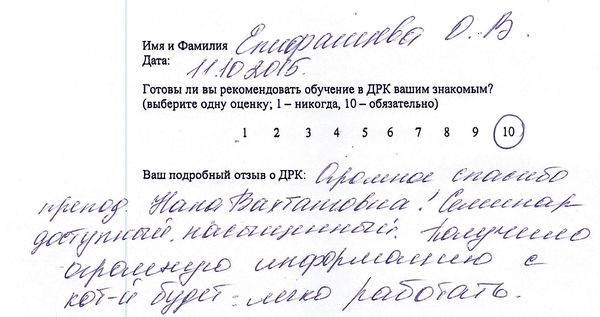 Имя и Фамилия Епифанцева О. В.
Дата: 11.10.2015.
Готовы ли вы рекомендовать обучение в ДРК вашим знакомым?
(выберите одну оценку; 1 – никогда, 10 – обязательно)
1 2 3 4 5 6 7 8 9 10
Ваш подробный отзыв о ДРК: Огромное спасибо
препод. Нана Вахтанговна! Семинар
доступный, насыщенный. Получила
огромную информацию с
кот-й будет легко работать.